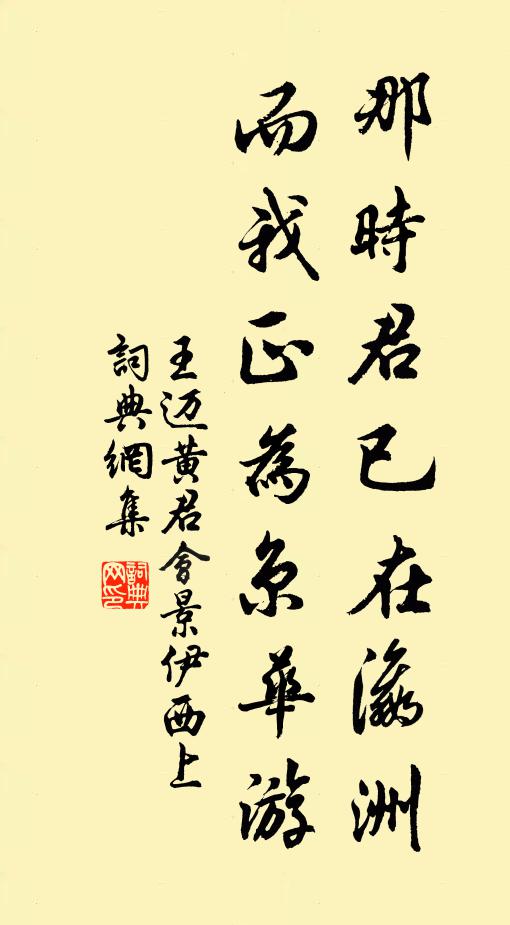 那時君已在瀛洲
而我正為京華游
王迈黄君會景伊西上
詞典網集
詞典网印